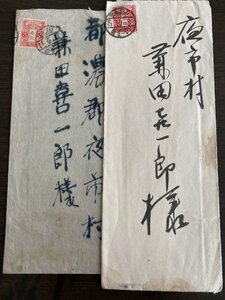 夜市村
兼田喜一郎様
都濃郡夜市村
兼田喜一郎様